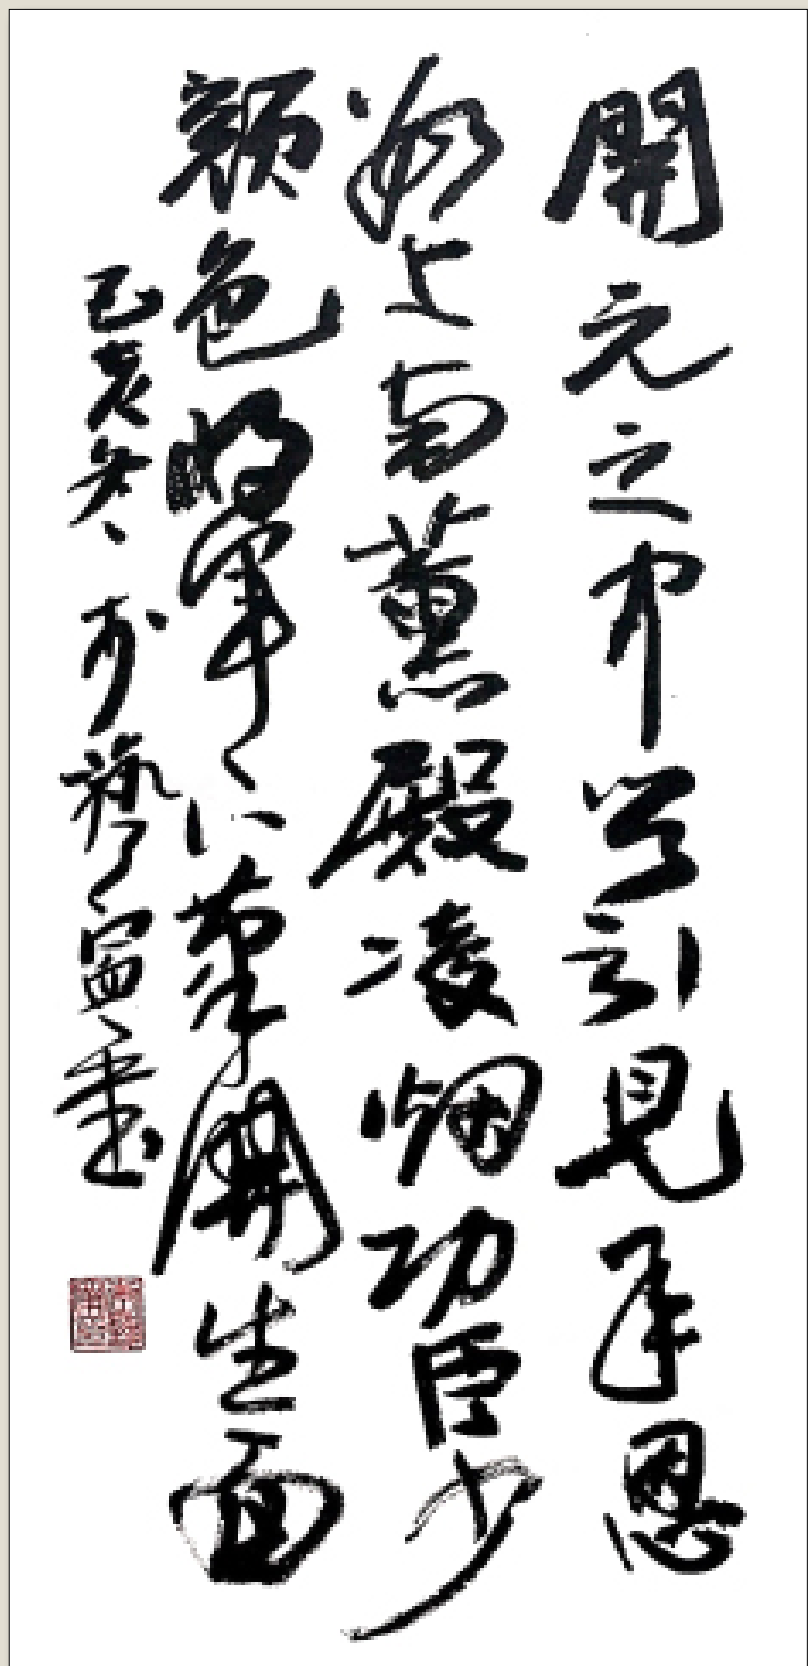 開元之中常引見承恩
數上南薰殿凌烟功臣少
顏色將軍下筆開生面
己亥冬於藝